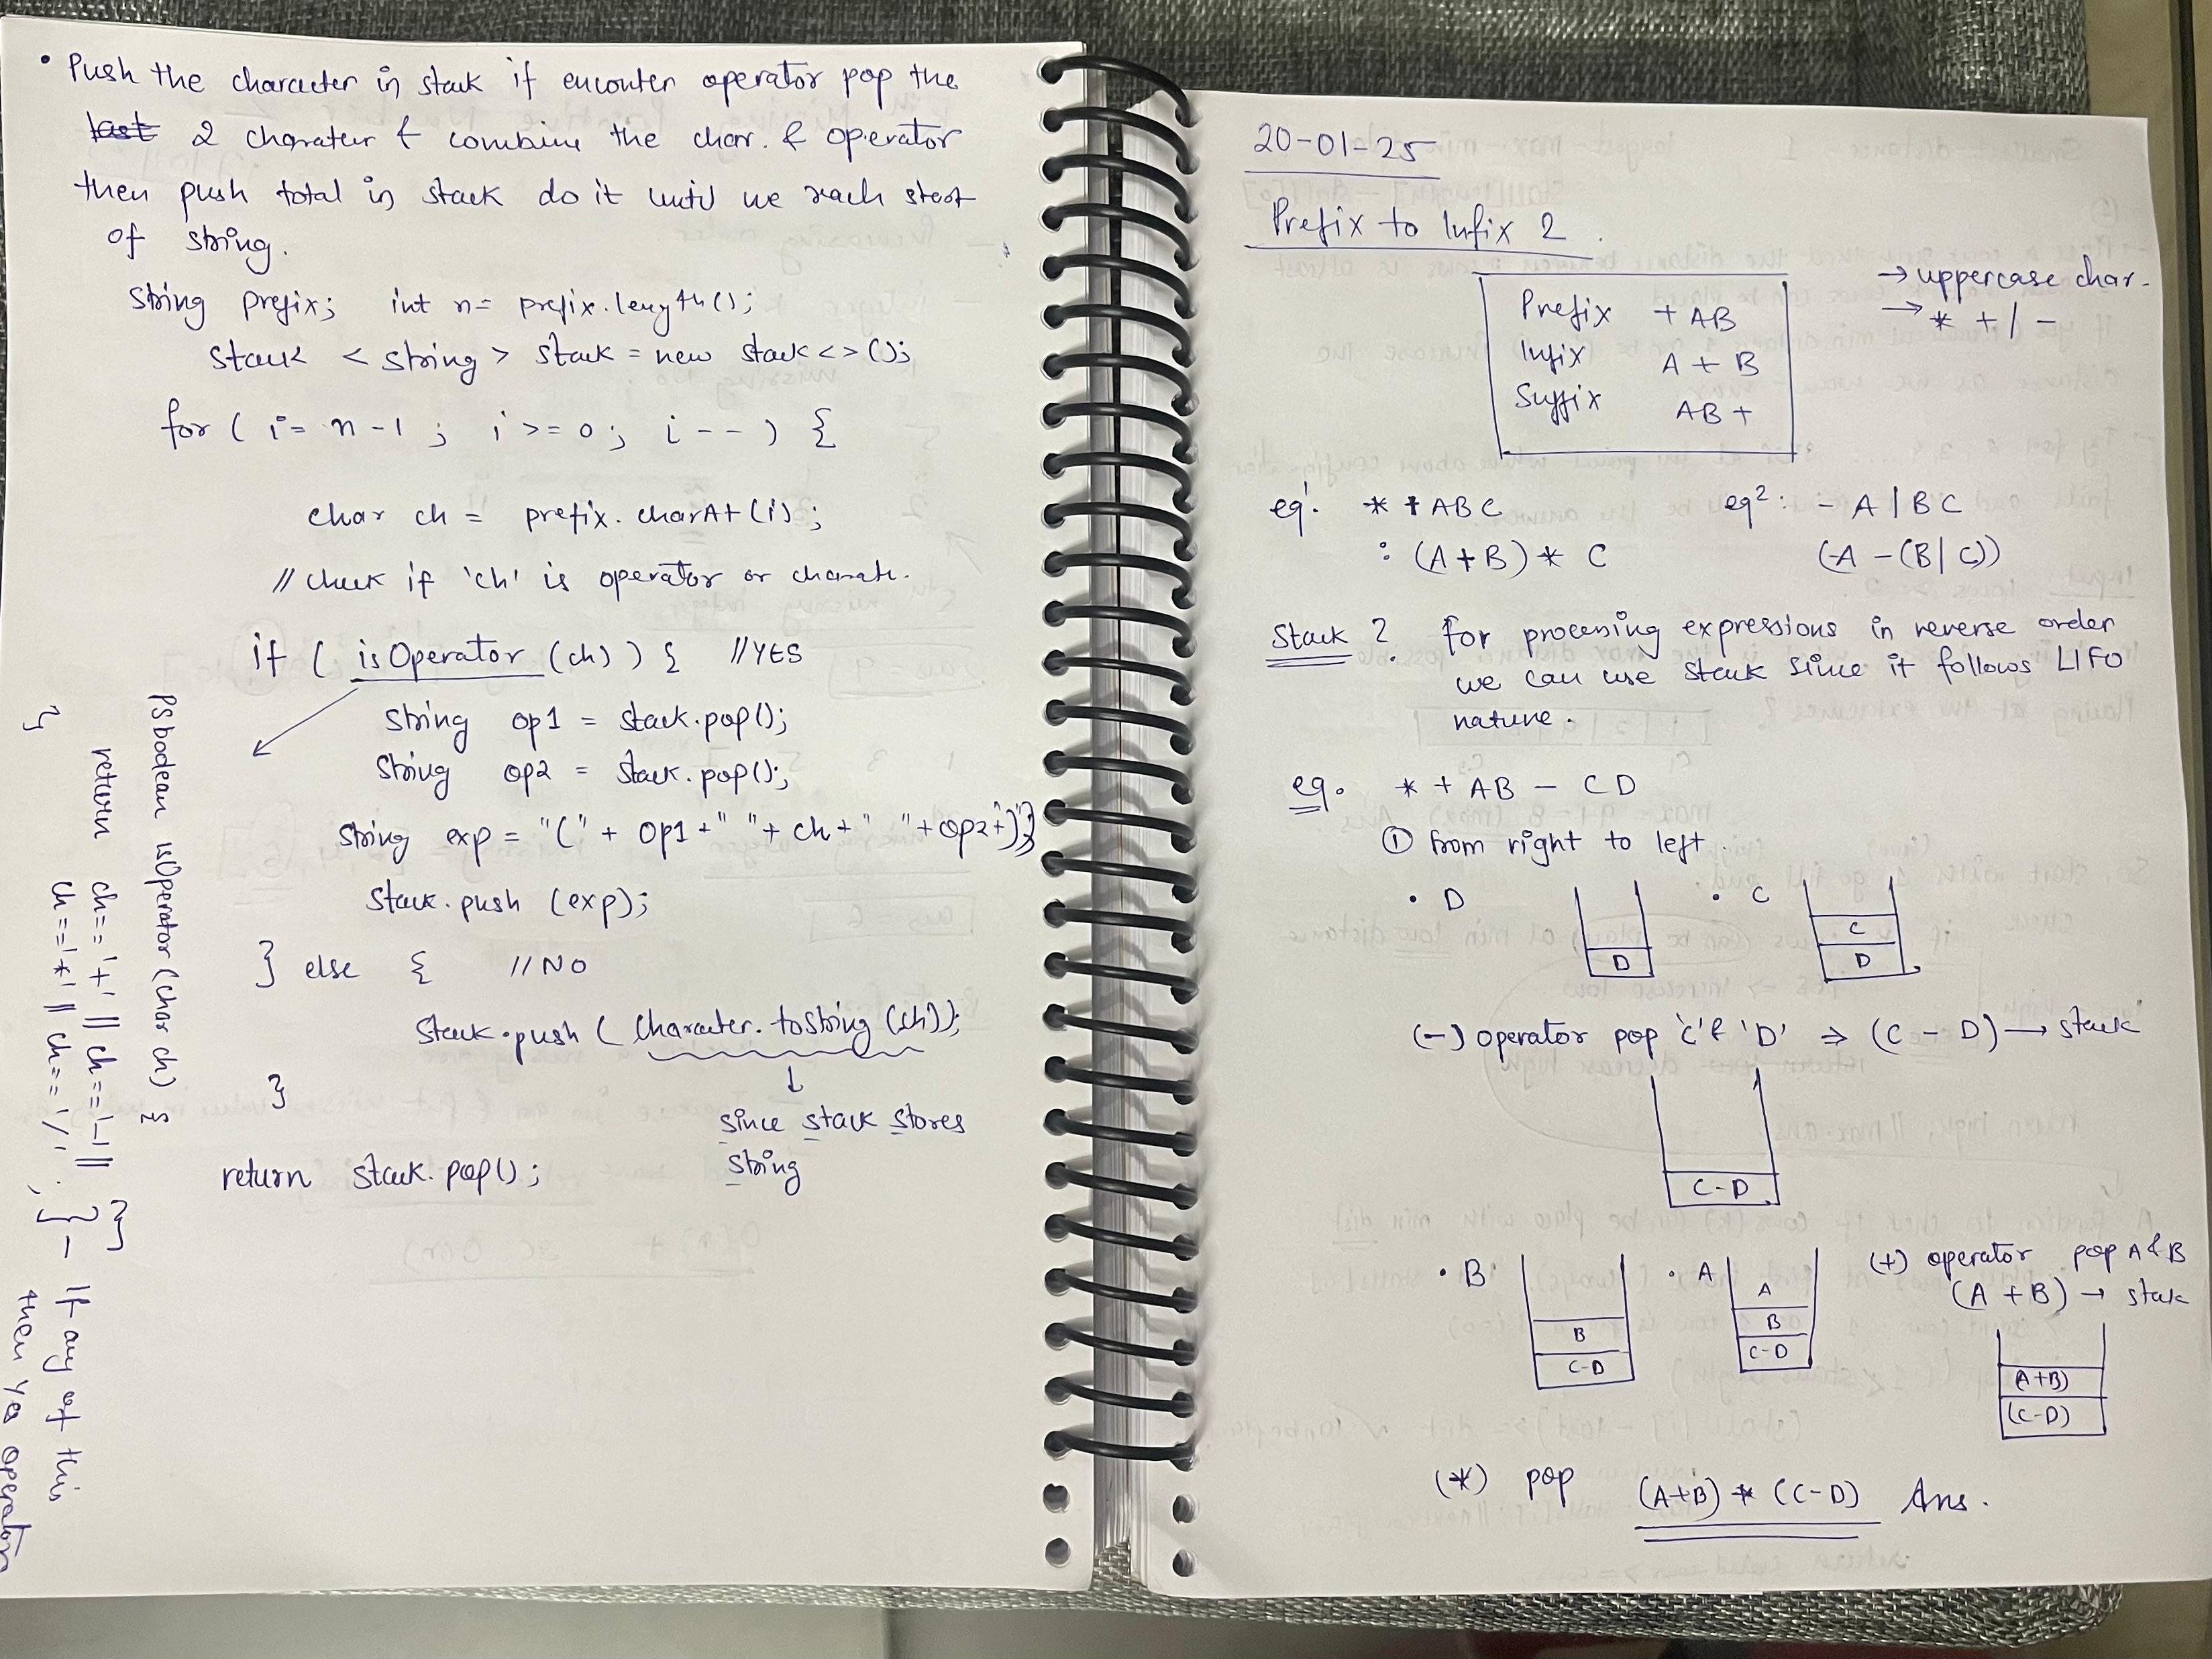 • Push the character in stack if encouter operator pop the
last 2 charater & combine the char. & operator
then push total in stack do it until we reach start
of string.
String prefix; int n= prefix.length();
stack <string> stack = new stack<>();
for ( i= n-1 ; i >= 0; i-- ) {
char ch = prefix.charAt(i);
// check if 'ch' is operator or charate.
if ( isOperator (ch) ) { //YES
String op1 = stack.pop();
String op2 = stack.pop();
String exp = "(" + op1 +" "+ ch +" "+ op2+")";
Stack.push (exp);
} else { // NO
Stack.push ( Character.toString (ch));
↓
}
since stack stores
string
return stack.pop();
PS boolean isOperator (char ch) {
return ch=='+' || ch=='-' ||
ch=='*' || ch=='/' ;
}
} - If any of this
then yes operator
20-01-25
Prefix to Infix 2
Prefix + AB
Infix A + B
Suffix AB +
→ uppercase char.
→ * + / -
eg1. * + ABC
: (A+B) * C
eg2: - A / BC
(A - (B/C))
Stack ? for processing expressions in reverse order
we can use stack since it follows LIFO
nature.
eg. * + AB - CD
① from right to left.
• D
D
• C
C
D
(-) operator pop 'C' & 'D' ⇒ (C - D) → stack
C-D
• B
B
C-D
• A
A
B
C-D
(+) operator pop A & B
(A + B) → stack
(A+B)
(C-D)
(*) pop (A+B) * (C-D) Ans.